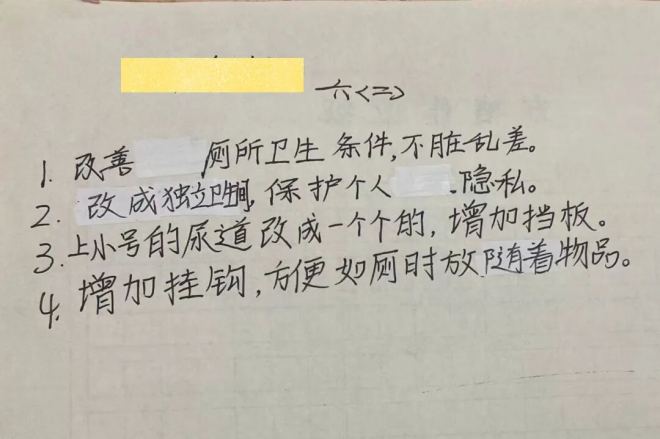 六<二>
1. 改善 厕所卫生条件,不脏乱差。
2. 改成独立卫生间,保护个人 隐私。
3. 上小号的尿道改成一个个的,增加挡板。
4. 增加挂钩,方便如厕时放随着物品。